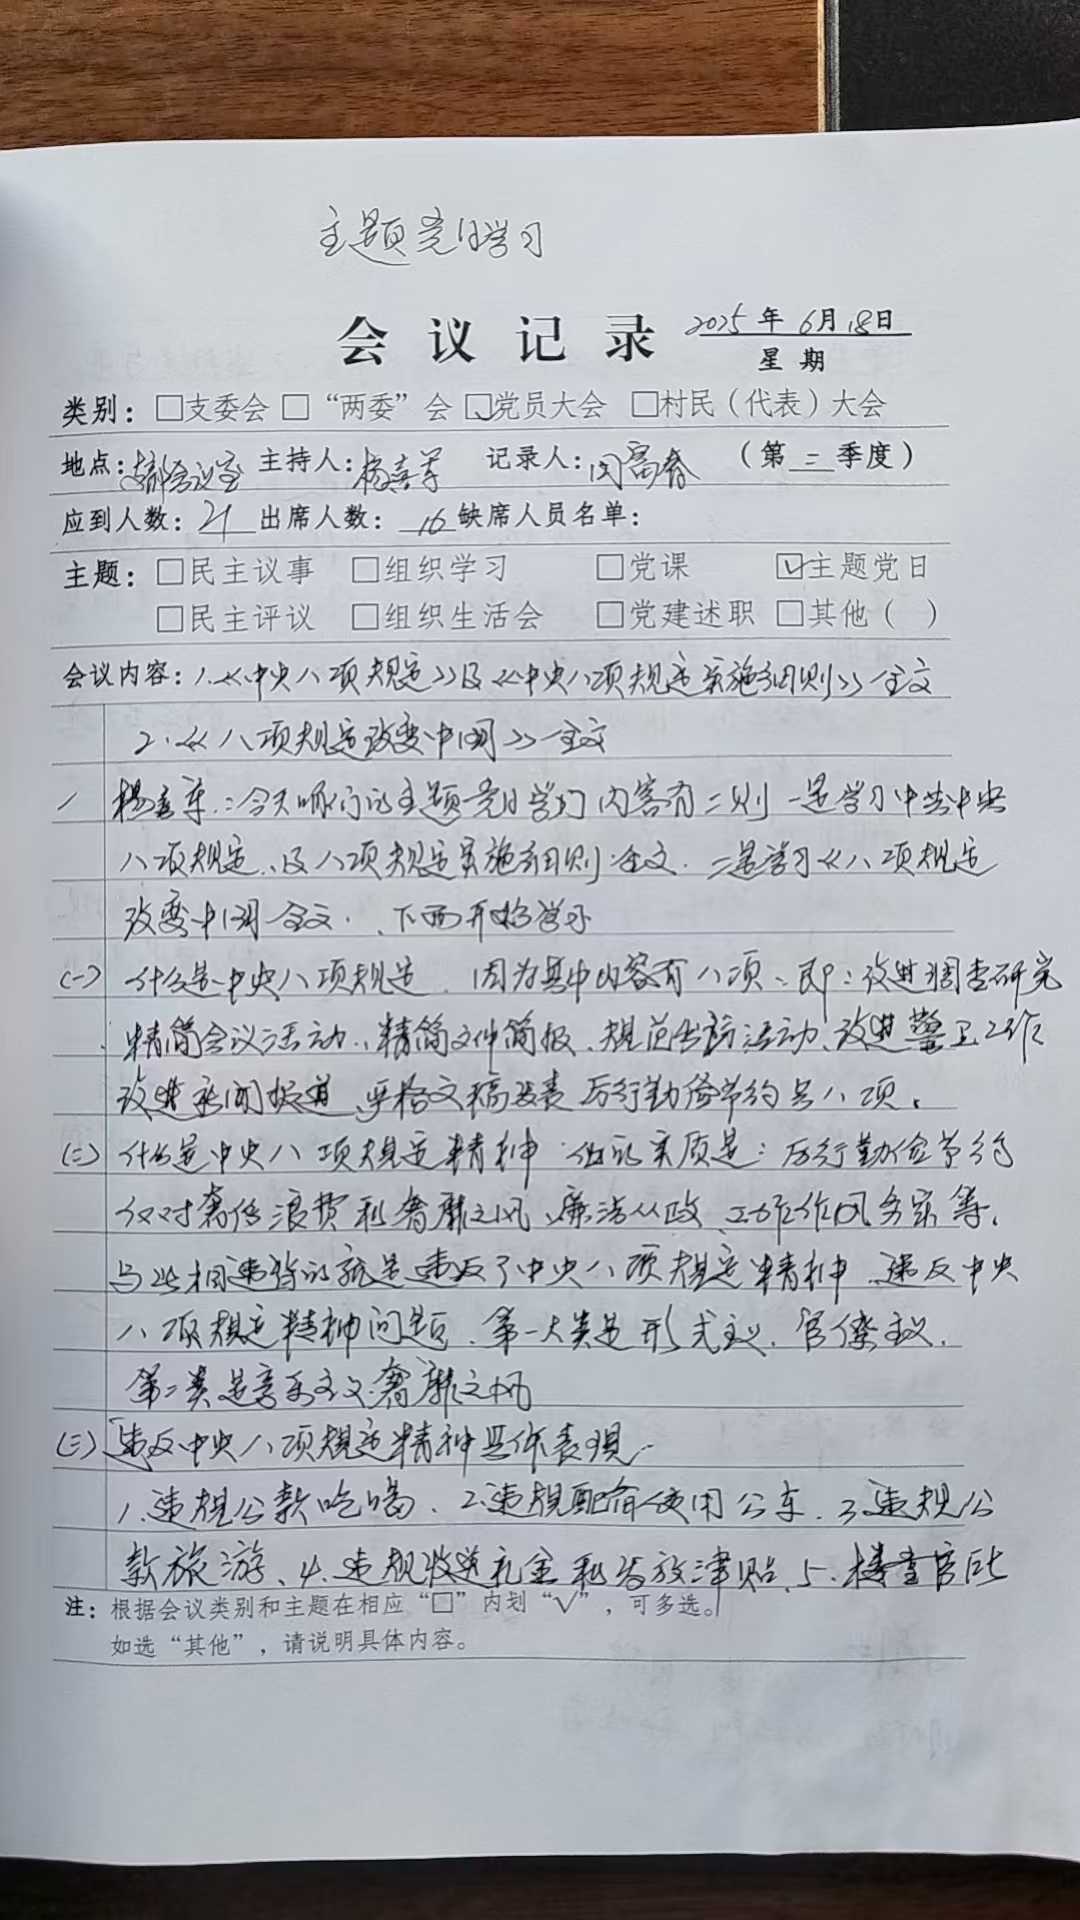 主题党日学习
会议记录 2025年6月18日
星期
类别：□支委会 □“两委”会 ☑党员大会 □村民（代表）大会
地点：支部会议室 主持人：杨喜军 记录人：闵富春 （第二季度）
应到人数：21 出席人数：16 缺席人员名单：
主题：□民主议事 □组织学习 □党课 ☑主题党日
□民主评议 □组织生活会 □党建述职 □其他（ ）
会议内容：1.《中央八项规定》及《中央八项规定实施细则》全文
2.《八项规定改变中国》全文
杨喜军：今天咱们的主题党日学习内容有二则 一是学习中共中央
八项规定、及八项规定实施细则全文、二是学习《八项规定
改变中国全文、下面开始学习
(一) 什么是中央八项规定、因为其中内容有八项、即：改进调查研究
精简会议活动、精简文件简报、规范出访活动、改进警卫工作
改进新闻报道、严格文稿发表 厉行勤俭节约共八项。
(二) 什么是中央八项规定精神 他的实质是：厉行勤俭节约
反对奢侈浪费和奢靡之风、廉洁从政、工作作风务实等、
与此相违背的就是违反了中央八项规定精神、违反中央
八项规定精神问题、第一大类是形式主义、官僚主义、
第二类是享乐主义、奢靡之风
(三) 违反中央八项规定精神具体表现
1.违规公款吃喝、2.违规配备使用公车、3.违规公
款旅游、4.违规收送礼金和发放津贴、5.楼堂官所
注：根据会议类别和主题在相应“□”内划“√”，可多选。
如选“其他”，请说明具体内容。